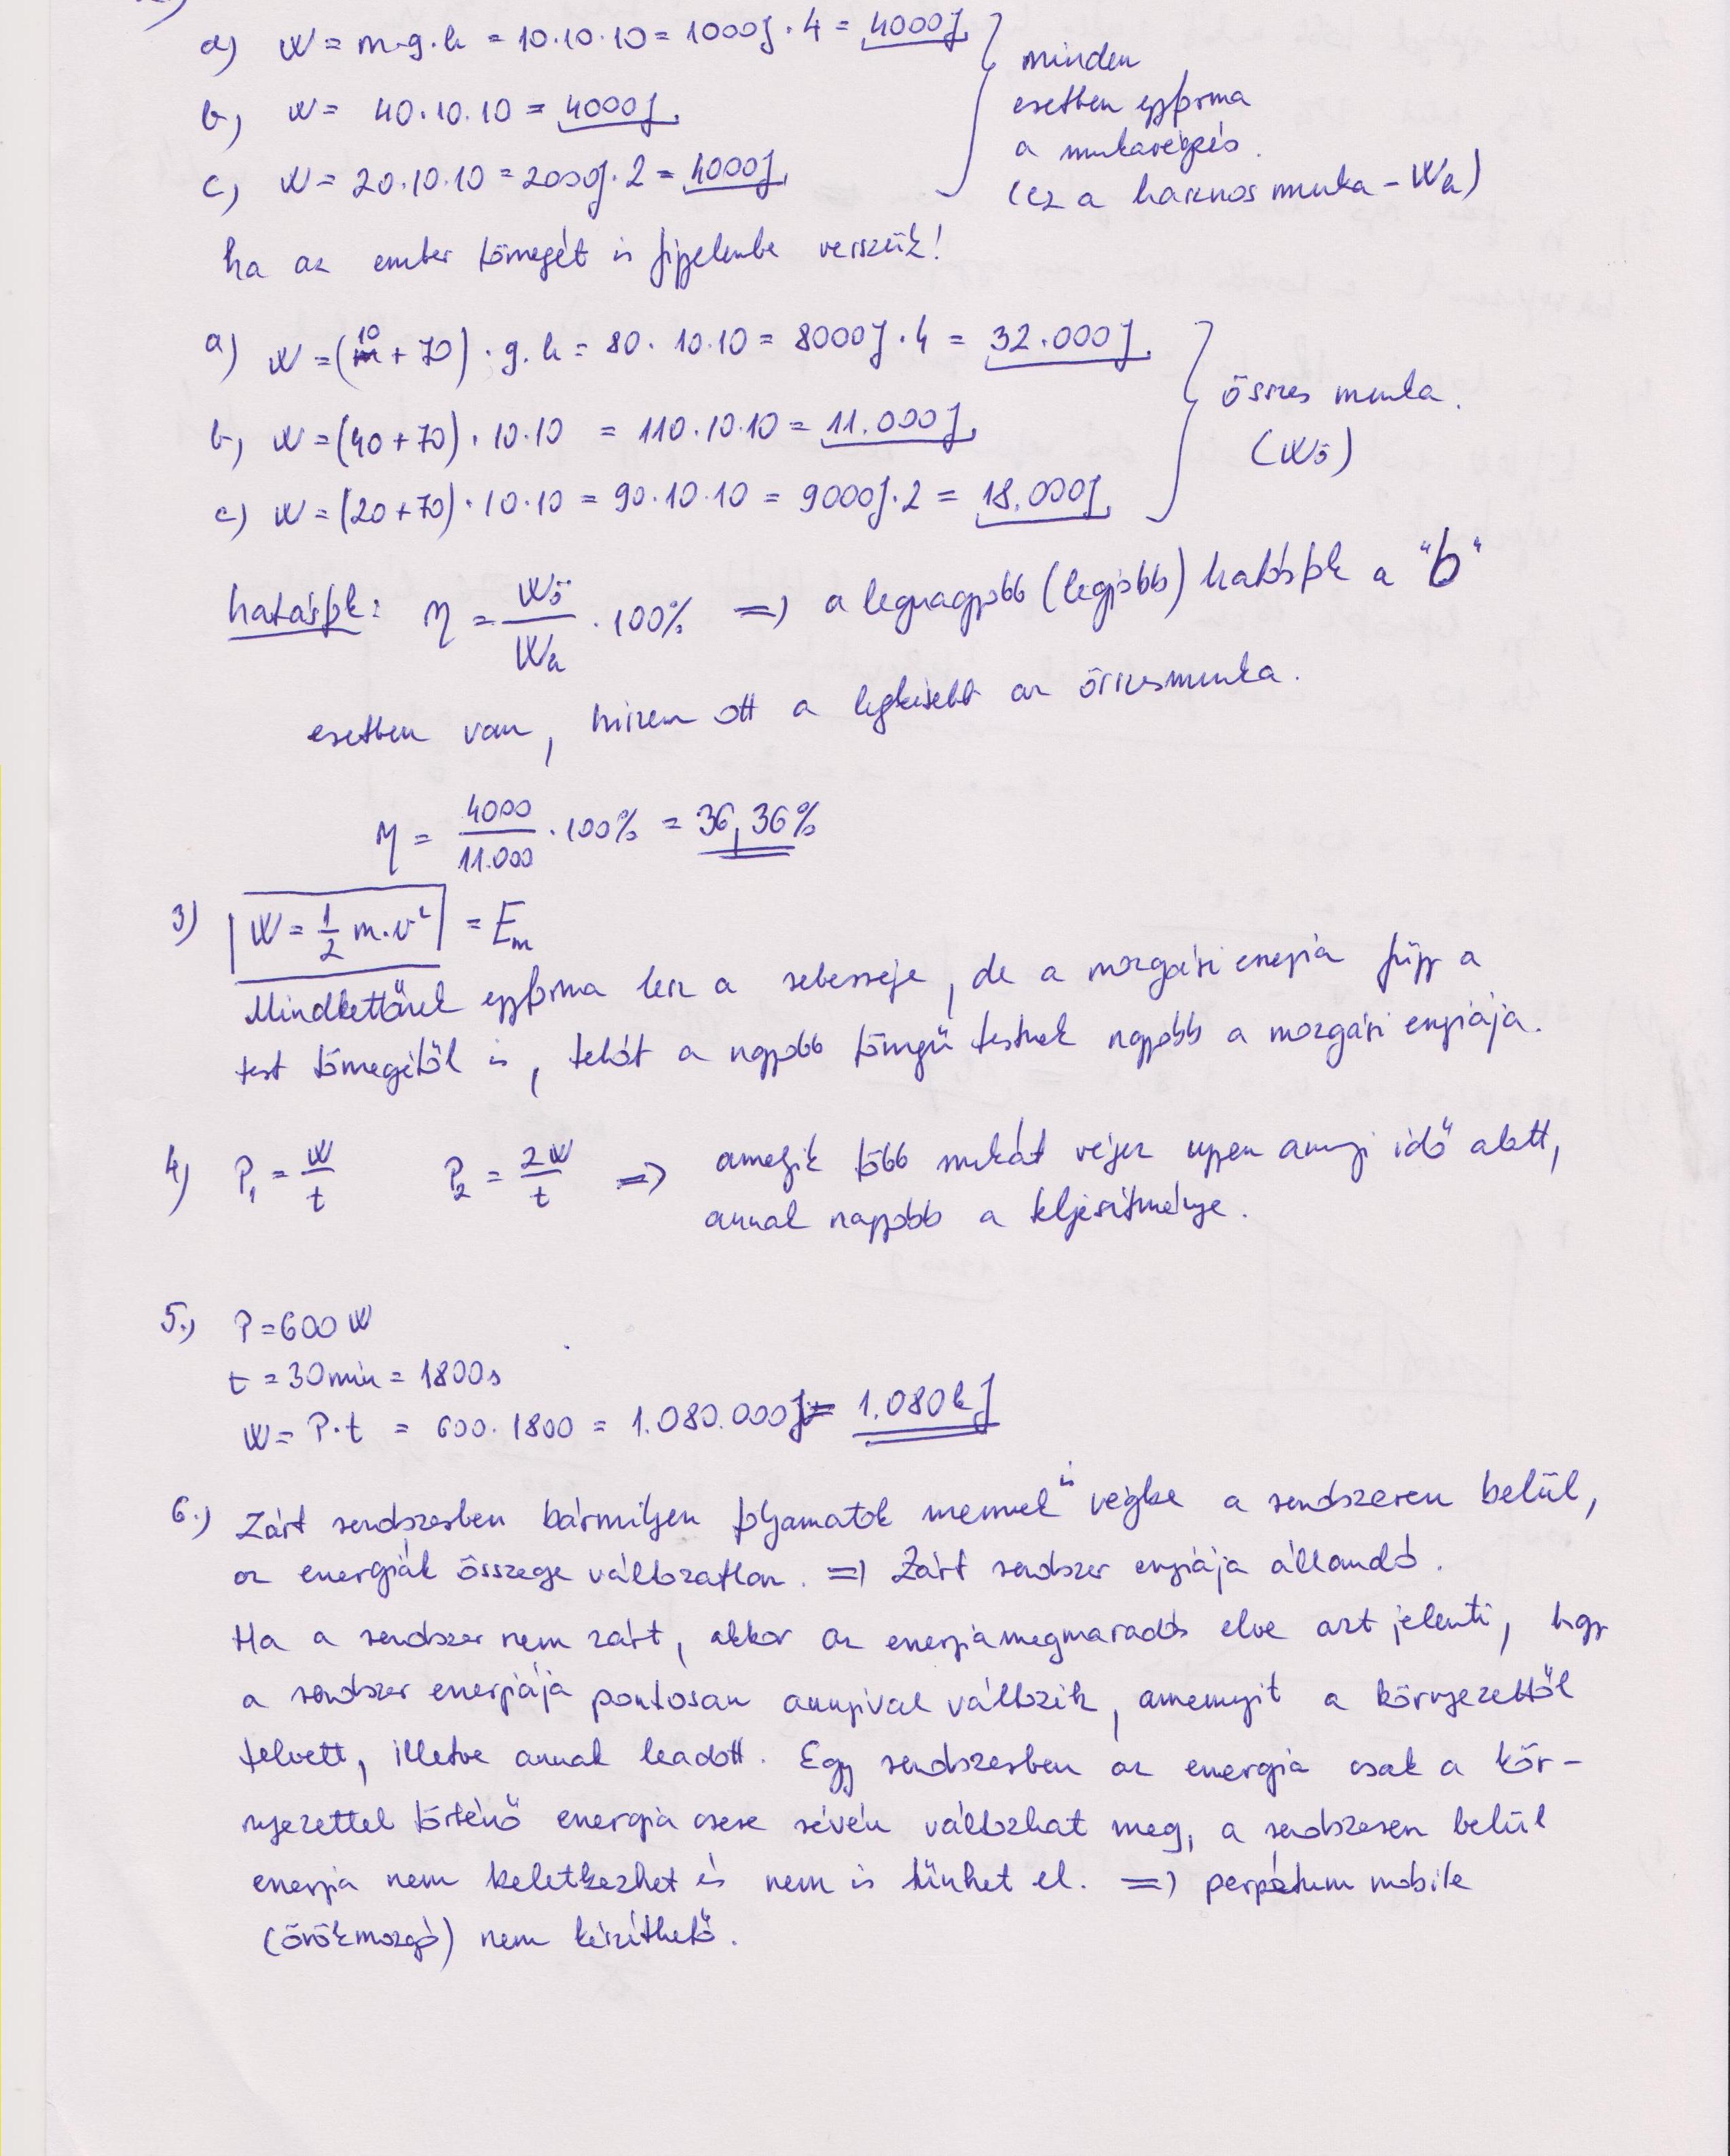 a) W = m·g·h = 10·10·10 = 1000J·4 = 4000J
minden
esetben egyforma
a munkavégzés.
(ez a hasznos munka – Wh)
b, W = 40·10·10 = 4000J
c, W = 20·10·10 = 2000J·2 = 4000J
ha az ember tömegét is figyelembe vesszük!
a) W = (10 + 70)·g·h = 80·10·10 = 8000J·4 = 32.000J
b, W = (40+70)·10·10 = 110·10·10 = 11.000J
c) W = (20+70)·10·10 = 90·10·10 = 9000J·2 = 18.000J
összes munka.
(Wö)
hatásfok: η = Wö/Wh · 100% => a legnagyobb (legjobb) hatásfok a "b"
esetben van, hiszen ott a legkisebb az összesmunka.
η = 4000/11.000 · 100% = 36,36%
3) W = 1/2 m·v² = Em
Mindkettőnek egyforma lesz a sebessége, de a mozgási energia függ a
test tömegétől is, tehát a nagyobb tömegű testnek nagyobb a mozgási energiája.
4) P1 = W/t P2 = 2W/t => amelyik több munkát végez ugyan annyi idő alatt,
annak nagyobb a teljesítménye.
5., P = 600 W
t = 30min = 1800s
W = P·t = 600·1800 = 1.080.000J = 1.080kJ
6.) Zárt rendszerben bármilyen folyamatok mennek is végbe a rendszeren belül,
az energiák összege változatlan. => Zárt rendszer energiája állandó.
Ha a rendszer nem zárt, akkor az energiamegmaradás elve azt jelenti, hogy
a rendszer energiája pontosan annyival változik, amennyit a környezettől
felvett, illetve annak leadott. Egy rendszerben az energia csak a kör-
nyezettel történő energia csere révén változhat meg, a rendszeren belül
energia nem keletkezhet és nem is tűnhet el. => perpétum mobile
(örökmozgó) nem készíthető.